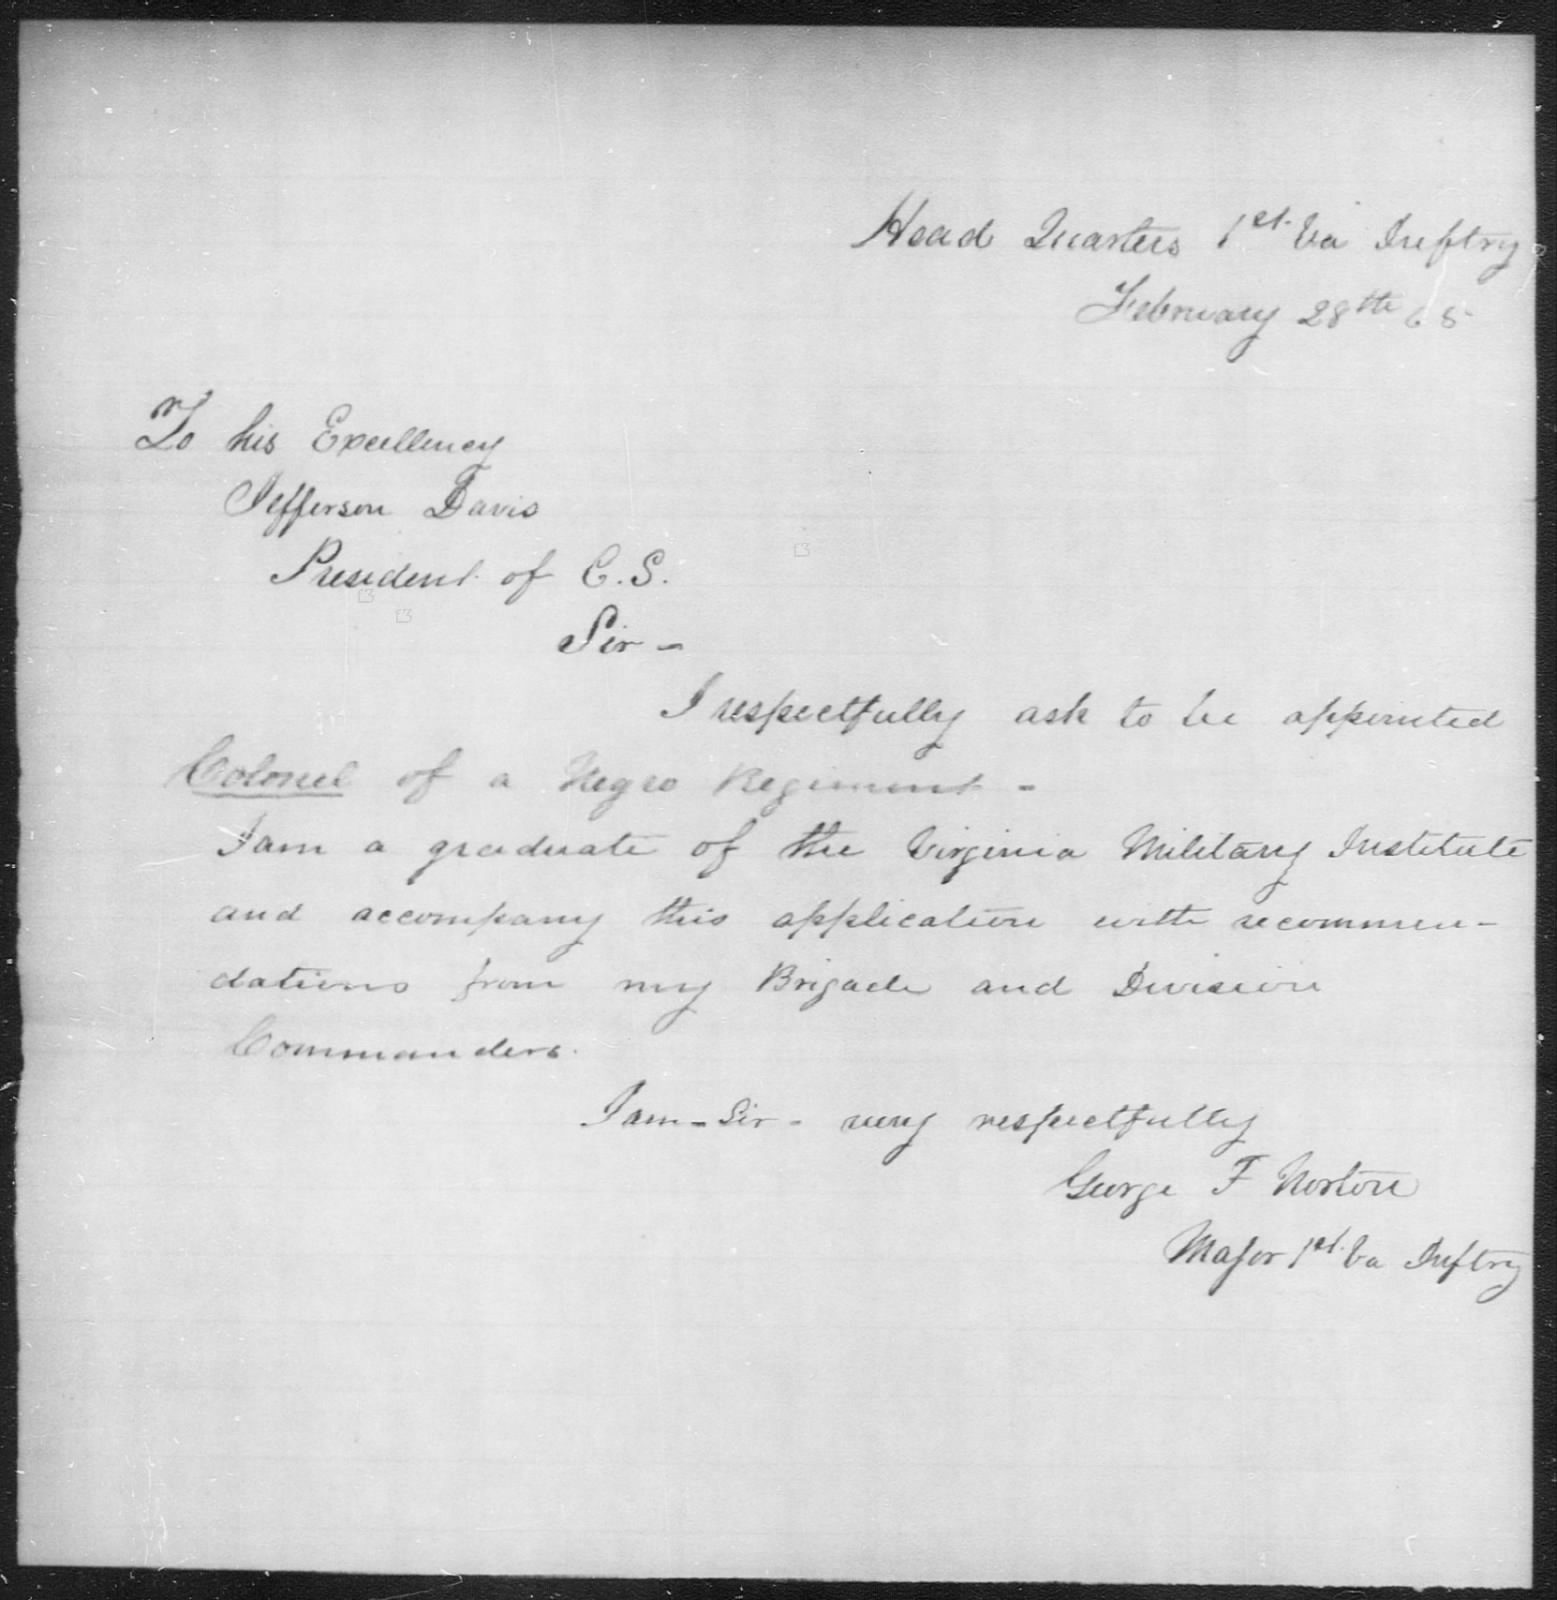 Head Quarters 1st. Va Inftry
February 28th 65
To his Excellency
Jefferson Davis
President of C.S.
Sir -
I respectfully ask to be appointed
Colonel of a Negro Regiment -
I am a graduate of the Virginia Military Institute
and accompany this application with recommen-
dations from my Brigade and Division
Commanders.
I am - Sir - very respectfully
George F Norton
Major 1st. Va Inftry